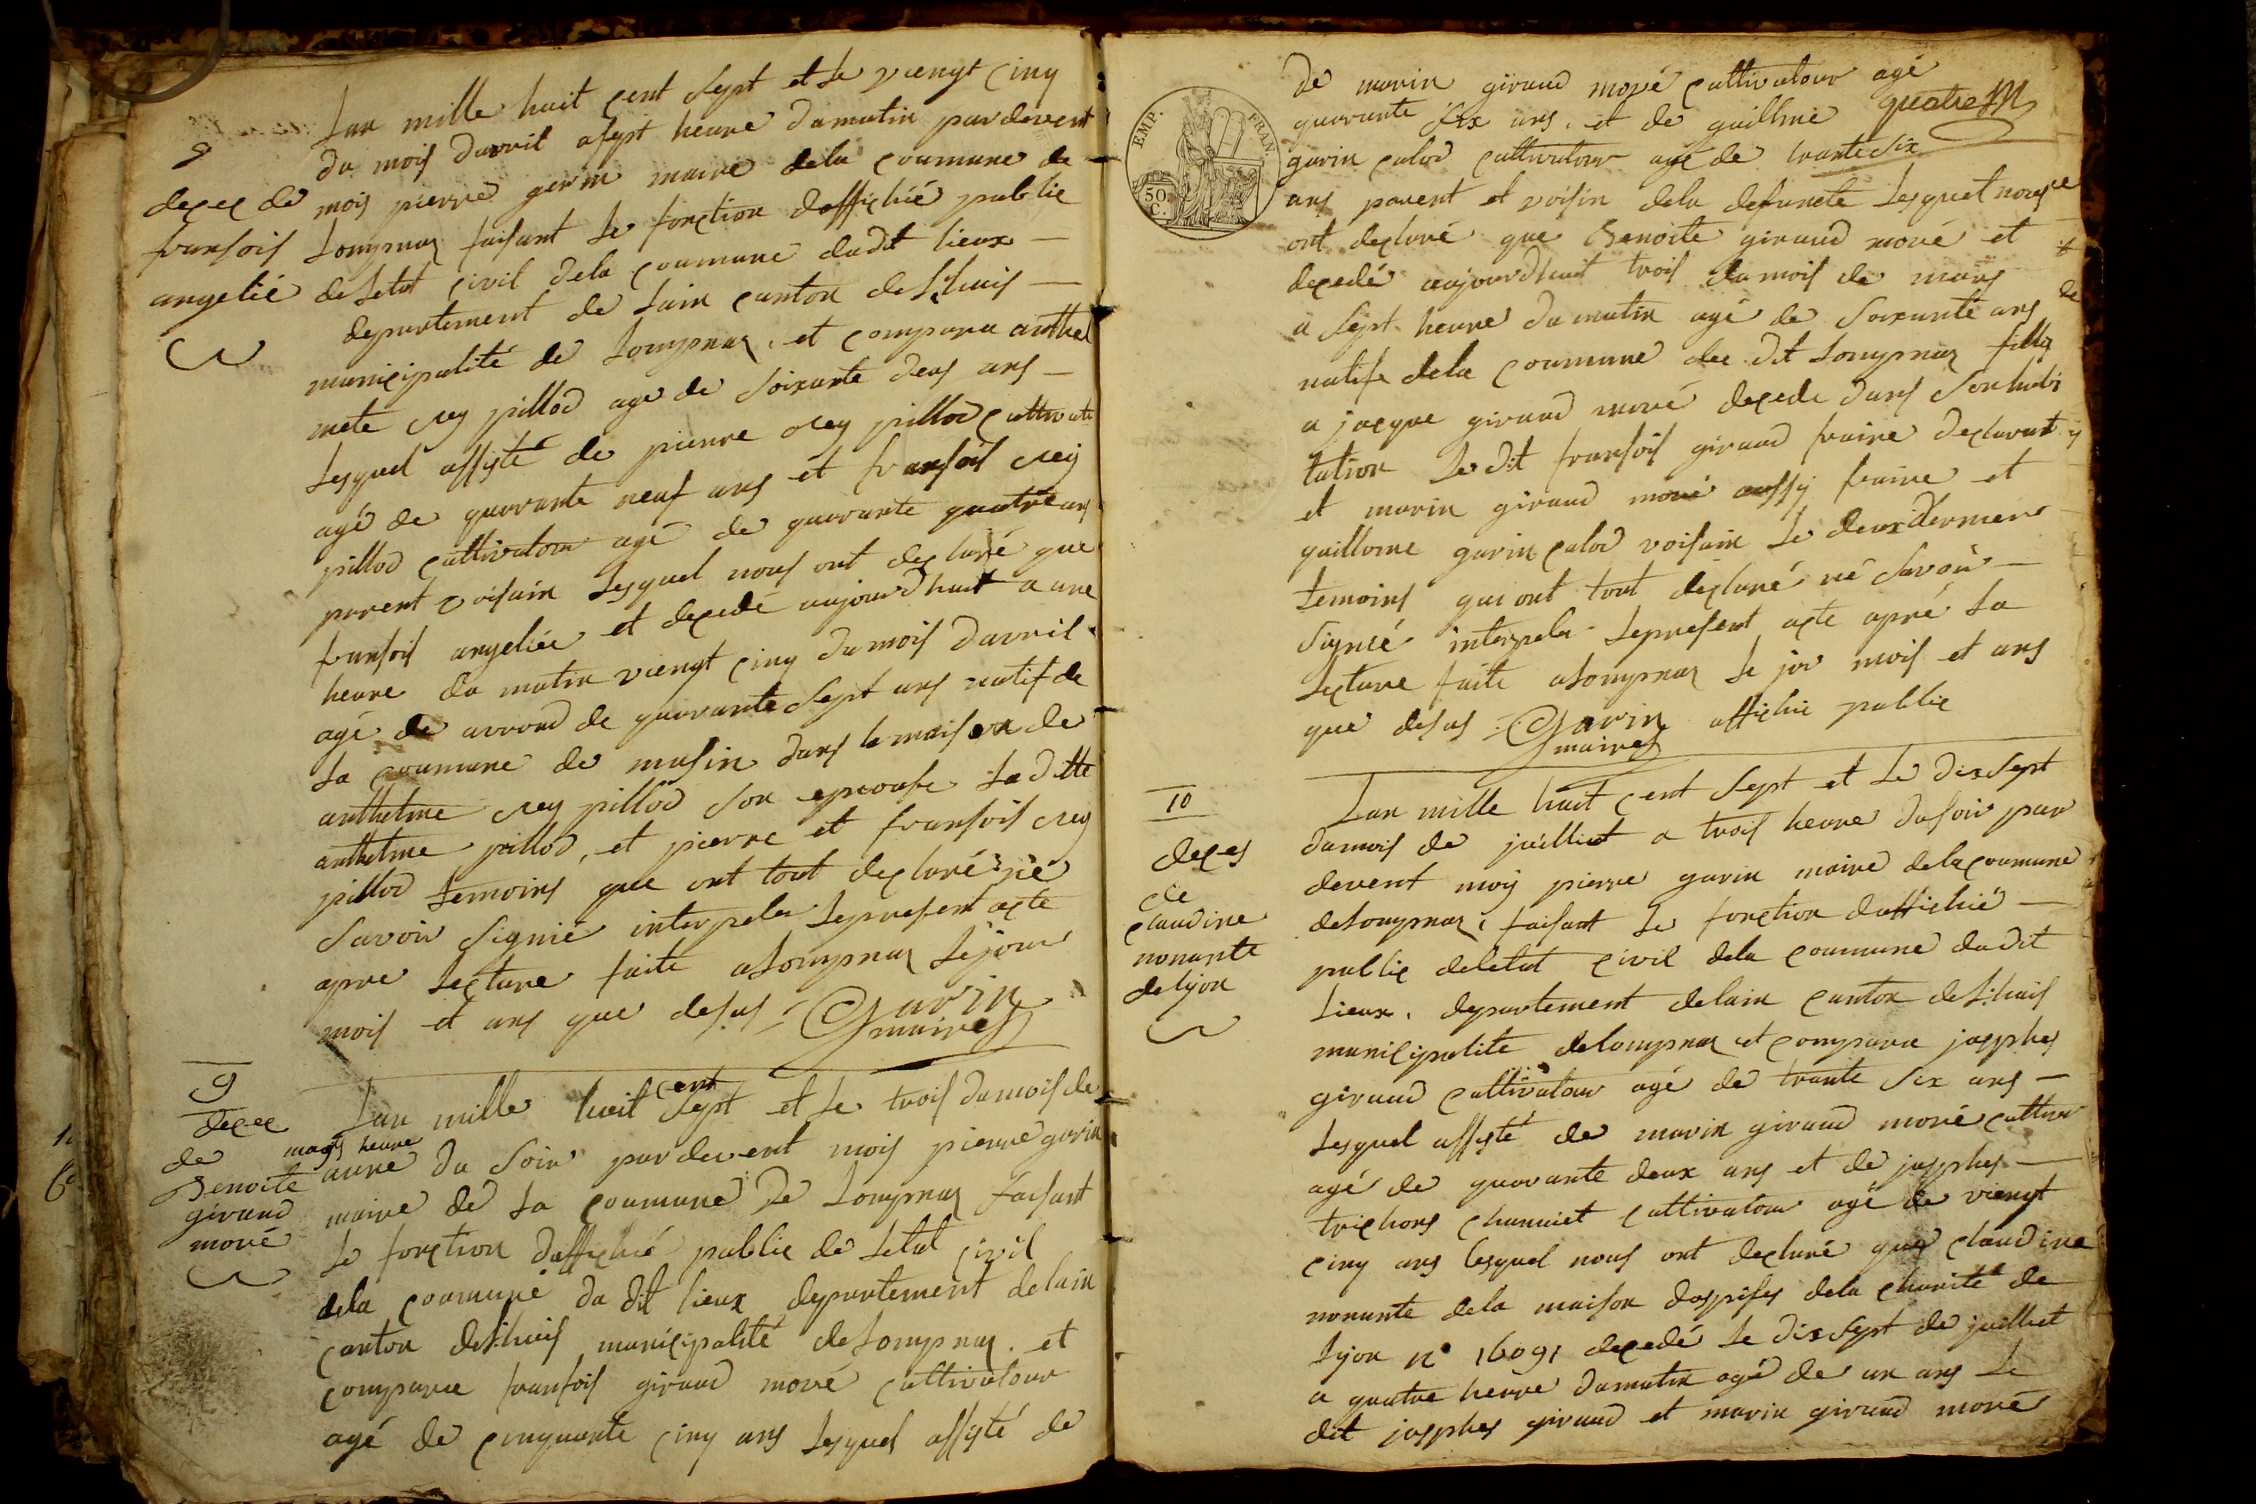 8
deces de
fransois
angelié
Lan mille huit cent sept et le viengt cinq
du mois davril a sept heure du matin pardevent
mois pierre garin maire dela coumune de
Lompnaz faisant le fonction daffichié public
de letat civil dela coumune dudit lieux
departement de lain canton de Lhuis
municipalité de Lompnaz, et comparu anthel
mete rey pillod age de soixante deus ans
lesquel assysté de pierre rey pillod cultivate
agé de quarante neuf ans et fransois rey
pillod cultivatour agé de quarante quatre ans
parent voisain lesquel nous ont declaré que
fransois angeliée et decedé aujourdhuit a une
heure du matin viengt cinq du mois davril
agé de de quarante sept ans natif de
la coumune de dans la maison de
anthelme rey pillod son epcouse la ditte
anthelme pillod, et pierre et fransois rey
pillod temoins que ont tout declaré né
savoir signié interpeler lepresent acte
apre lecture faite a Lompnaz le jour
mois et ans que desus Garin
maire
9
decec
de
Benoite
giraud
moré
Lan mille huit cent sept et le trois du mois de
mars heure
aune du soir pardevent mois pierre garin
maire de la coumune de Lompnaz faisant
le fonction daffichié public de letat civil
dela coumune du dit lieux departement delain
canton de Lhuis municipalité de Lompnaz, et
comparu fransois giraud moré cultivatour
agé de cinquante cinq ans lesquel assysté de
EMP. FRAN.
50 C.
de marin giraud moré cultivatour agé
quarante six ans, et de guillme quatre
garin calod cultivatour agé de trante six
ans parent et voisin dela defuncte lesquel nous
ont declaré que Benoite giraud moré et
decedé aujourdhuit trois du mois de mars
a sept heure du matin agé de soixante ans
natife dela coumune du dit Lompnaz fillie
a jacque giraud moré decede dans son habi
tation le dit fransois giraud fraire declarant
et marin giraud moré aussy fraire et
guillome garin calod voisain le deux dernier
temoins qui ont tout declaré né savoir
signié interpeler lepresent acte apré la
lecture faite a Lompnaz le jor mois et ans
que desus Garin affichié public
maire
10
deces
de
claudine
nonante
de lyon
Lan mille huit cent sept et le dix sept
du mois de juilliet a trois heure du soir par
devent moy pierre garin maire dela coumune
de Lompnaz, faisant le fonction daffichié
public de letat civil dela coumune dudit
lieux, departement delain canton de Lhuis
municipalité de Lompnaz et comparu josephes
giraud cultivatour agé de trante six ans
lesquel assysté de marin giraud moré cultiv
agé de quarante deux ans et de josephes
cultivatour agé de viengt
cinq ans lesquel nous ont declaré que claudine
nonante dela maison dospises dela charité de
lyon n° 16091 decedé le dix sept de juilliet
a quatre heure du matin agé de un ans le
dit josephes giraud et marin giraud moré